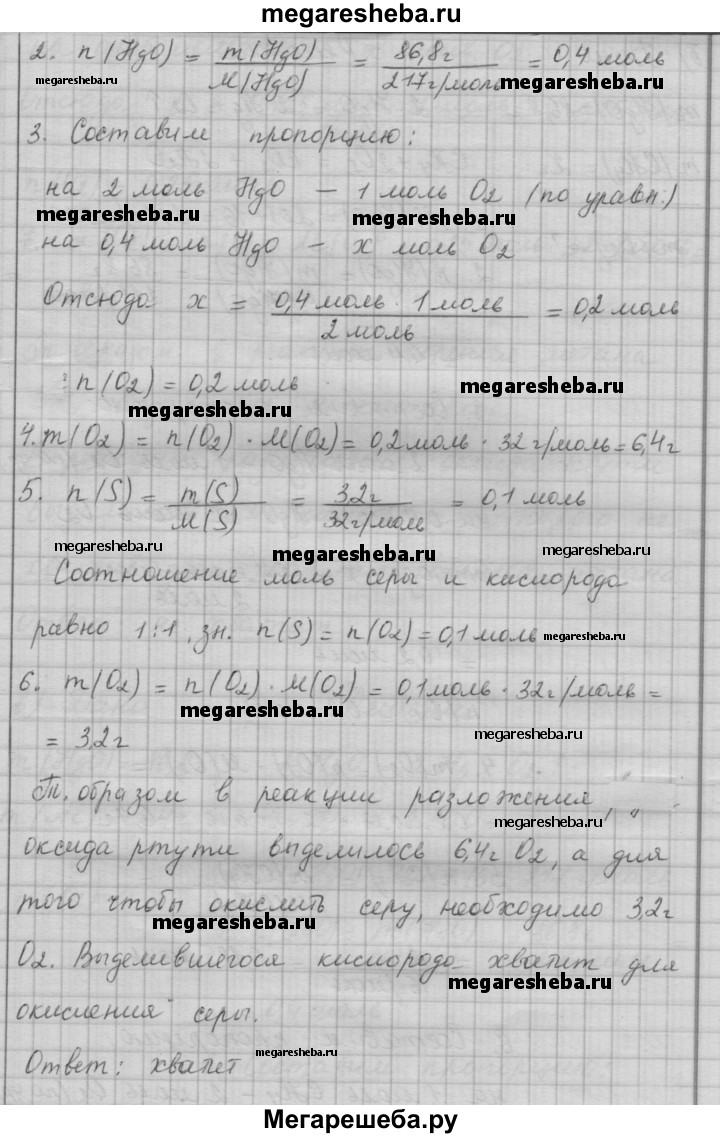 megaresheba.ru
2. n(HgO) = m(HgO) / M(HgO) = 86,8г / 217г/моль = 0,4 моль
megaresheba.ru
megaresheba.ru
3. Составим пропорцию:
на 2 моль HgO – 1 моль O2 (по уравн.)
megaresheba.ru
megaresheba.ru
на 0,4 моль HgO – x моль O2
Отсюда x = 0,4 моль · 1 моль / 2 моль = 0,2 моль
n(O2) = 0,2 моль
megaresheba.ru
megaresheba.ru
4. m(O2) = n(O2) · M(O2) = 0,2 моль · 32 г/моль = 6,4г
5. n(S) = m(S) / M(S) = 3,2г / 32г/моль = 0,1 моль
megaresheba.ru
megaresheba.ru
megaresheba.ru
Соотношение моль серы и кислорода
равно 1:1, зн. n(S) = n(O2) = 0,1 моль
megaresheba.ru
megaresheba.ru
6. m(O2) = n(O2) · M(O2) = 0,1 моль · 32г/моль =
megaresheba.ru
= 3,2г
megaresheba.ru
Т. образом в реакции разложения
megaresheba.ru
оксида ртути выделилось 6,4г O2, а для
того чтобы окислить серу, необходимо 3,2г
megaresheba.ru
O2. Выделившегося кислорода хватит для
megaresheba.ru
окисления серы.
Ответ: хватит
megaresheba.ru
Мегарешеба.ру